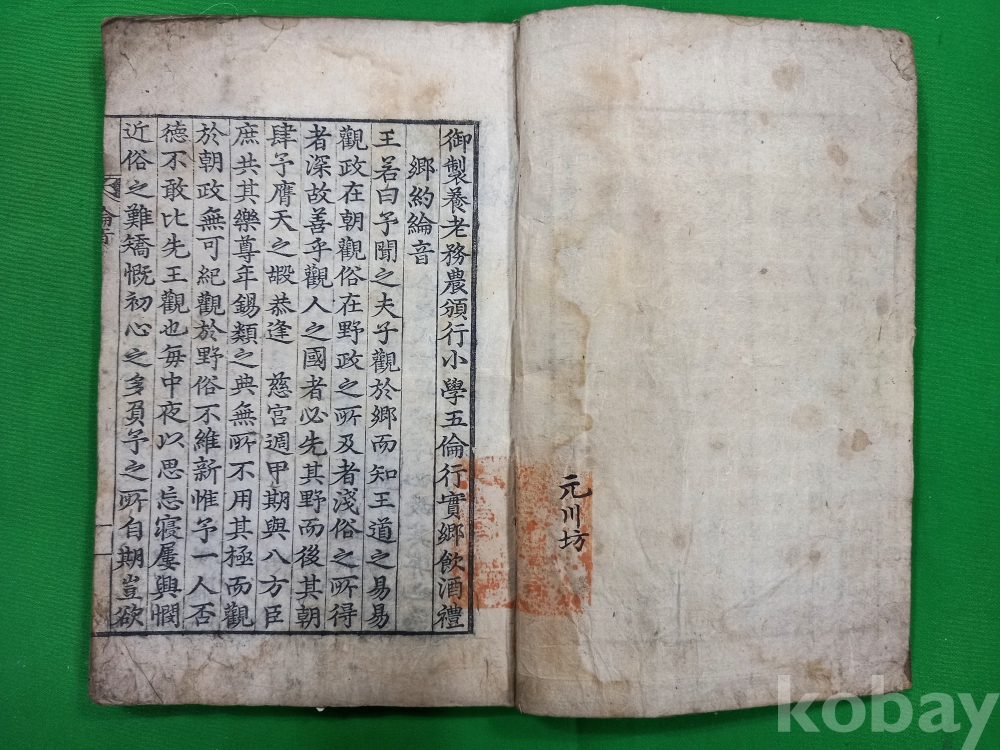 元川坊
御製養老務農頒行小學五倫行實鄉飮酒禮
鄉約綸音
王若曰予聞之夫子觀於鄉而知王道之易易
觀政在朝觀俗在野政之所及者淺俗之所得
者深故善乎觀人之國者必先其野而後其朝
肆予膺天之嘏恭逢 慈宮週甲期與八方臣
庶共其樂尊年錫類之典無所不用其極而觀
於朝政無可紀觀於野俗不維新惟予一人否
德不敢比先王觀也每中夜以思忘寢屢興憫
近俗之難矯慨初心之多負予之所自期豈欲
綸音
kobay